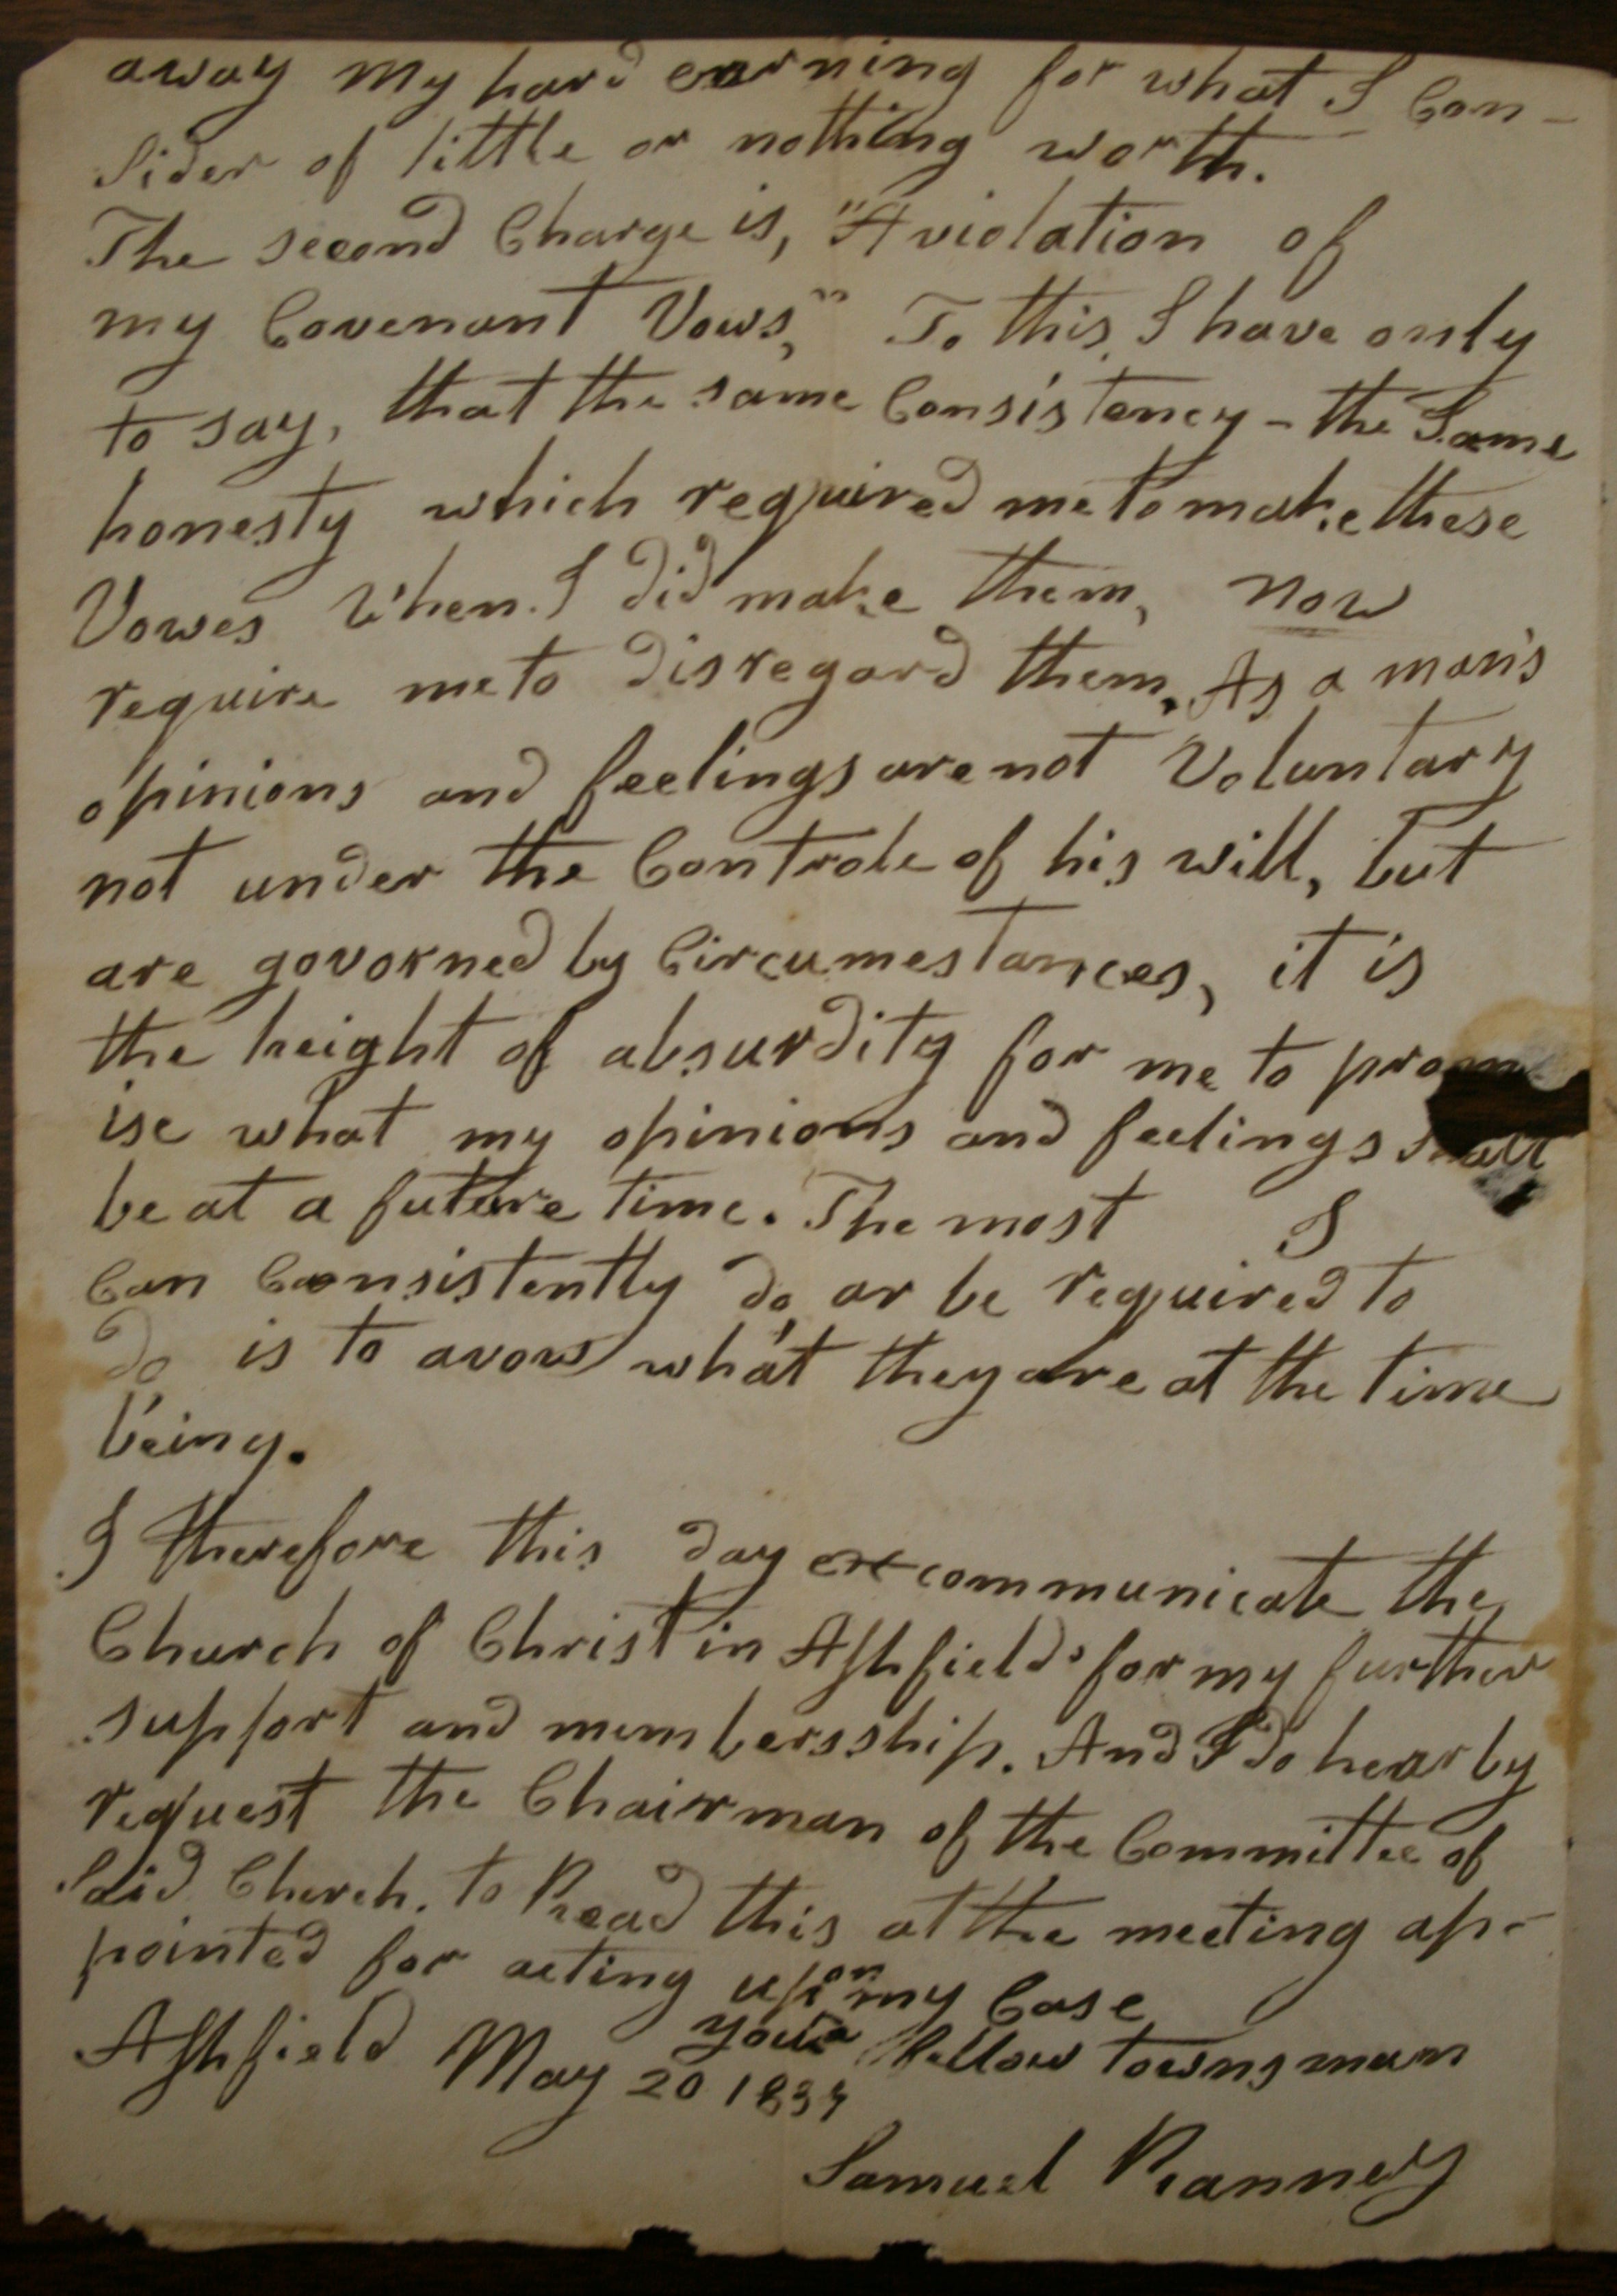 away my hard earning for what I Con-
sider of little or nothing worth.
The second Charge is, "A violation of
my Covenant Vows," To this I have only
to say, that the same Consistency - the Same
honesty which required me to make these
Vowes when I did make them, now
require me to disregard them. As a man's
opinions and feelings are not Voluntary
not under the Controle of his will, but
are governed by Circumestances, it is
the height of absurdity for me to prom
ise what my opinions and feelings shall
be at a future time. The most I
Can Consistently do, or be required to
do is to avow what they are at the time
being.
I therefore this day excommunicate the
Church of Christ in Ashfield for my further
support and membersship. And I do hearby
request the Chairman of the Committee of
Said Church. to Read this at the meeting ap-
pointed for acting upon my Case
your fellow townsman
Ashfield May 20 1834
Samuel Ranney